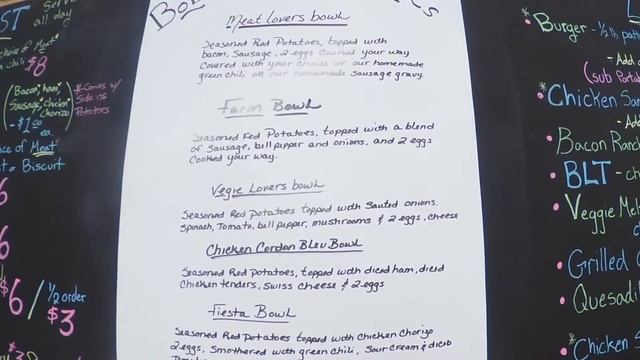 ST
Serv
all day
Choice of Meat
n chili $8
(Bacon, ham,
Sausage, Chicken
Chorizo)
- $1.00
ea.
*Comes w/
Side of
Potatoes
ce of Meat
t or Biscuit
6
6
$6 / 1/2 order
$3
Meat Lovers bowl
Seasoned Red Potatoes, topped with
bacon, Sausage, 2 eggs Cooked your way
Covered with your choice of our homemade
green chili or our homemade Sausage gravy.
Farm Bowl
Seasoned Red Potatoes, topped with a blend
of Sausage, bell pepper and onions, and 2 eggs
Cooked your way.
Vegie Lovers bowl
Seasoned Red Potatoes topped with Sauted onions.
Spinach, Tomato, bell pepper, mushrooms & 2 eggs, cheese
Chicken Cordon Bleu Bowl
Seasoned Red Potatoes, topped with diced ham, diced
Chicken tenders, Swiss Cheese & 2 eggs
Fiesta Bowl
Seasoned Red Potatoes topped with Chicken Chorizo
2 eggs, Smothered with green Chili, Sour Cream & diced
*Burger - 1/2 lb. patt
- Add
(sub Porta
*Chicken Sa
- Add
Bacon Ranch
BLT - ch
Veggie Me
Grilled C
Quesadil
*Chicken S